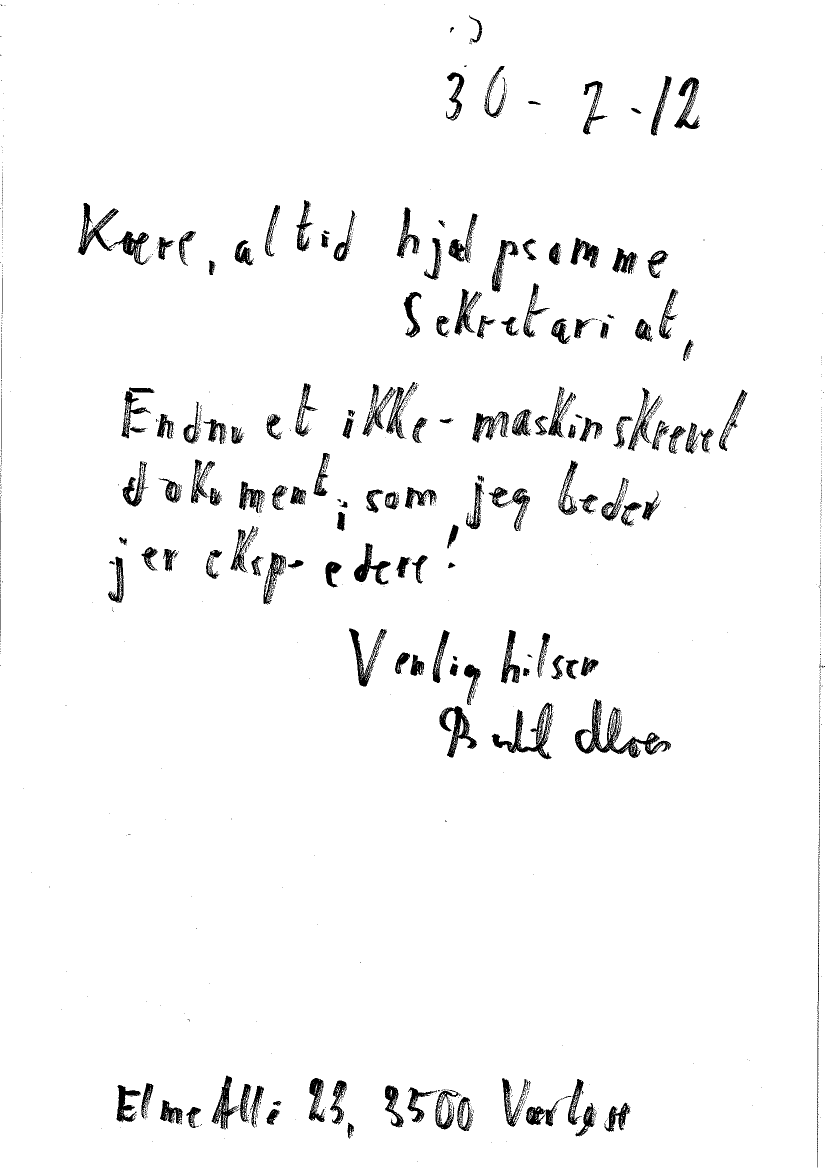 30-7-12
Kære, altid hjælpsomme
Sekretariat,
Endnu et ikke-maskinskrevet
dokument, som jeg beder
jer eksp-edere!
Venlig hilsen
Bertil
Elme Allé 23, 3500 Værløse